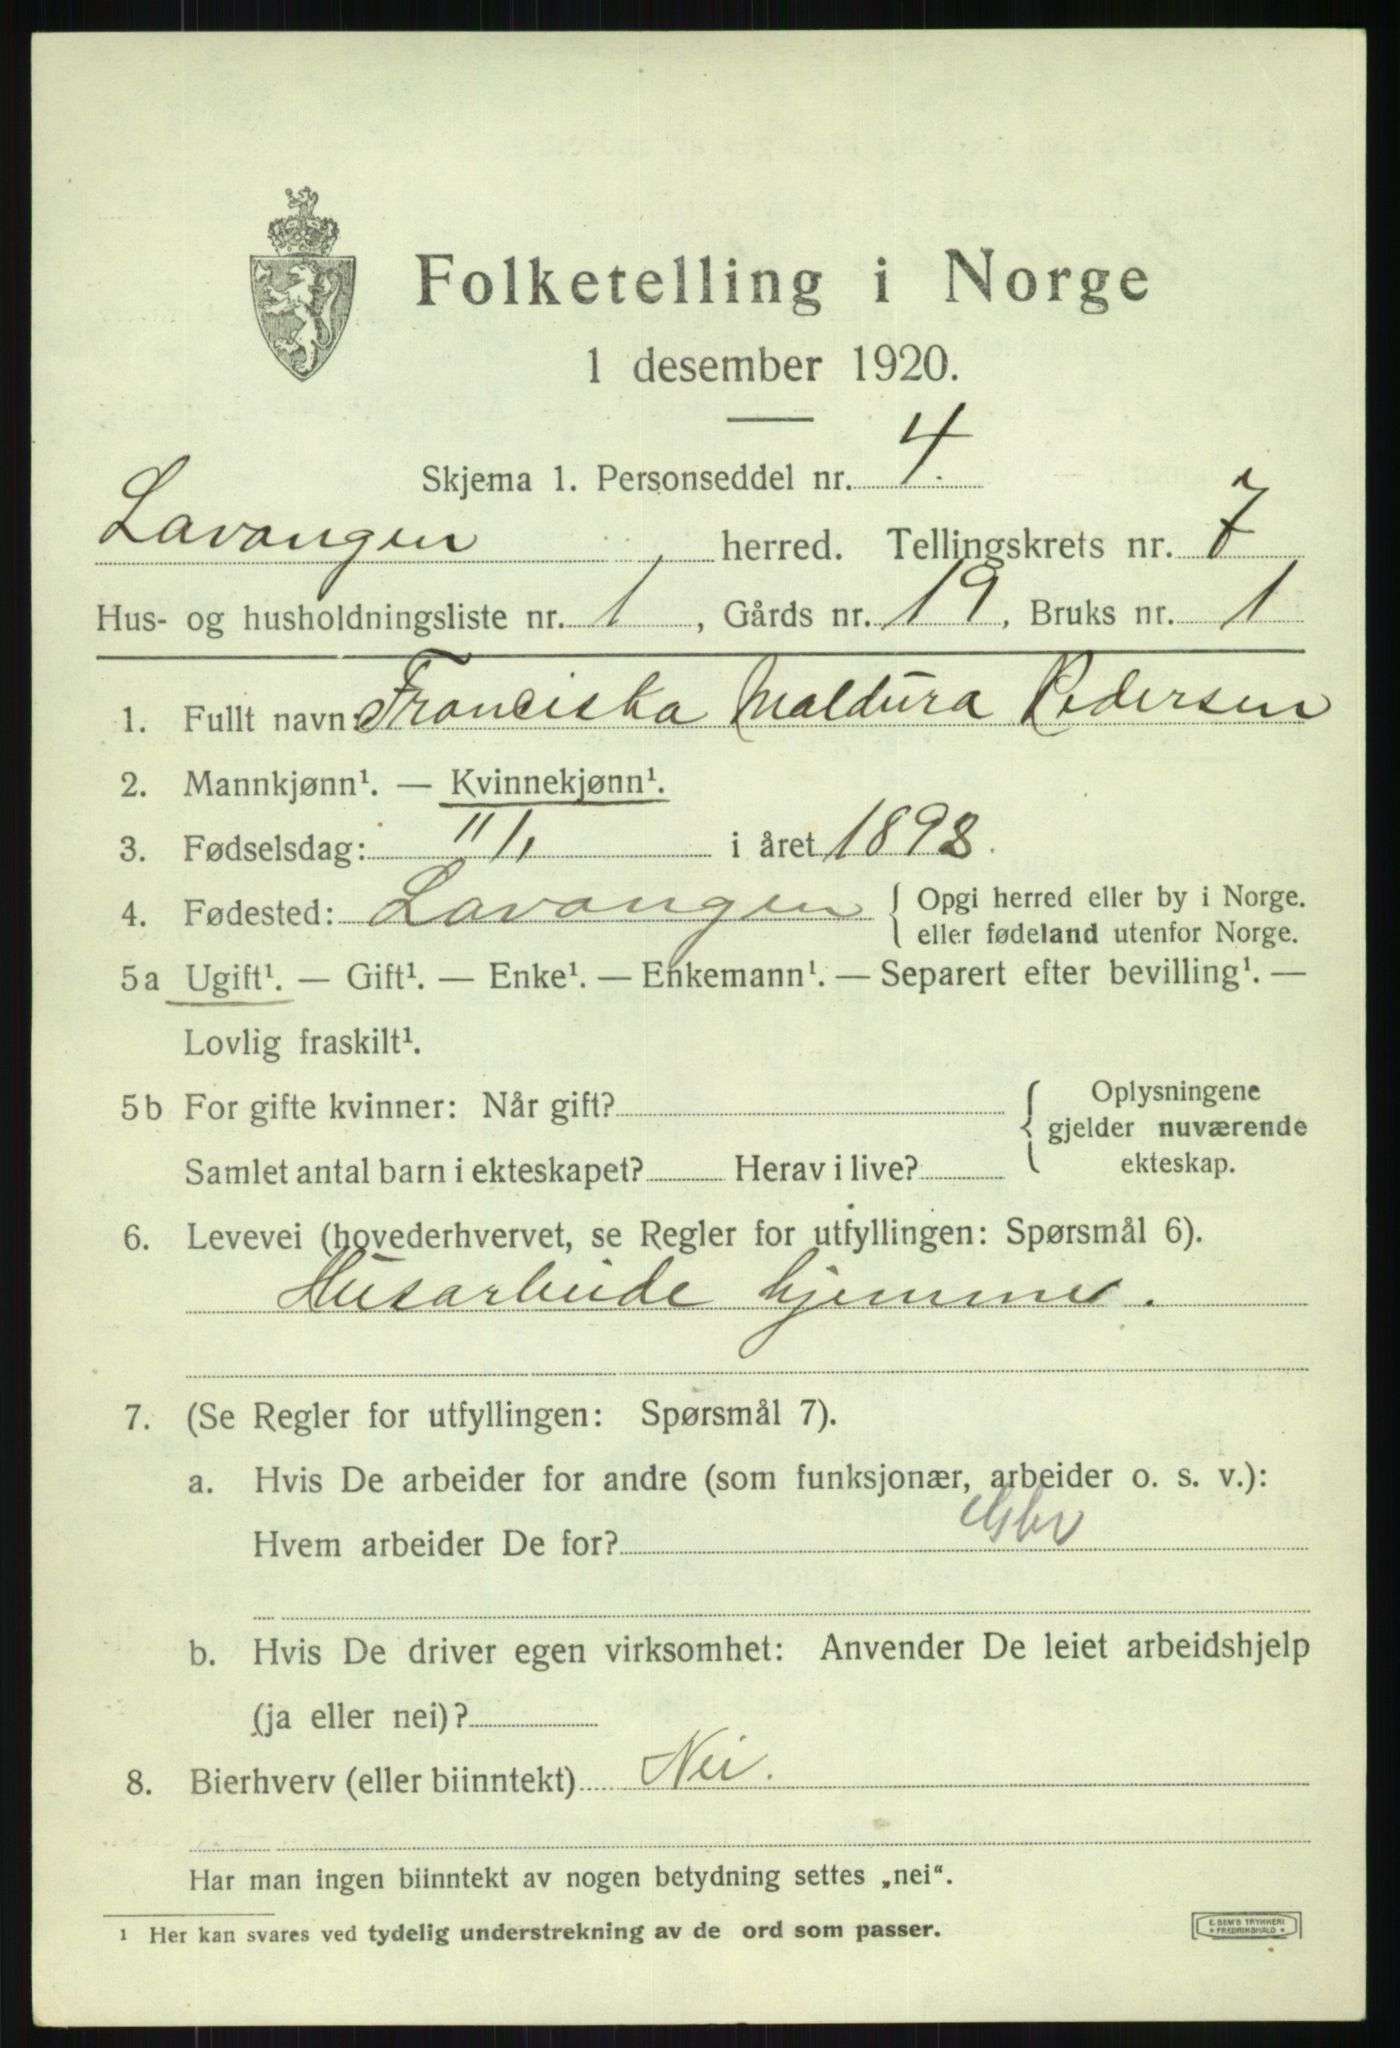 Folketelling i Norge
1 desember 1920.
Skjema 1. Personseddel nr. 4.
Lavangen herred. Tellingskrets nr. 7
Hus- og husholdningsliste nr. 1, Gårds nr. 19, Bruks nr. 1
1. Fullt navn: Franciska Maldura Pedersen
2. Mannkjønn¹. — Kvinnekjønn¹.
3. Fødselsdag: 11/1 i året 1898.
4. Fødested: Lavangen { Opgi herred eller by i Norge.
eller fødeland utenfor Norge.
5a Ugift¹. — Gift¹. — Enke¹. — Enkemann¹. — Separert efter bevilling¹. —
Lovlig fraskilt¹.
5b For gifte kvinner: Når gift? { Oplysningene
gjelder nuværende
Samlet antal barn i ekteskapet? Herav i live? ekteskap.
6. Levevei (hovederhvervet, se Regler for utfyllingen: Spørsmål 6).
Husarbeide hjemme.
7. (Se Regler for utfyllingen: Spørsmål 7).
a. Hvis De arbeider for andre (som funksjonær, arbeider o. s. v.):
Hvem arbeider De for?
b. Hvis De driver egen virksomhet: Anvender De leiet arbeidshjelp
(ja eller nei)?
8. Bierhverv (eller biinntekt) Nei.
Har man ingen biinntekt av nogen betydning settes „nei".
¹ Her kan svares ved tydelig understrekning av de ord som passer.
E. SEM'S TRYKKERI
* FREDRIKSHALD *